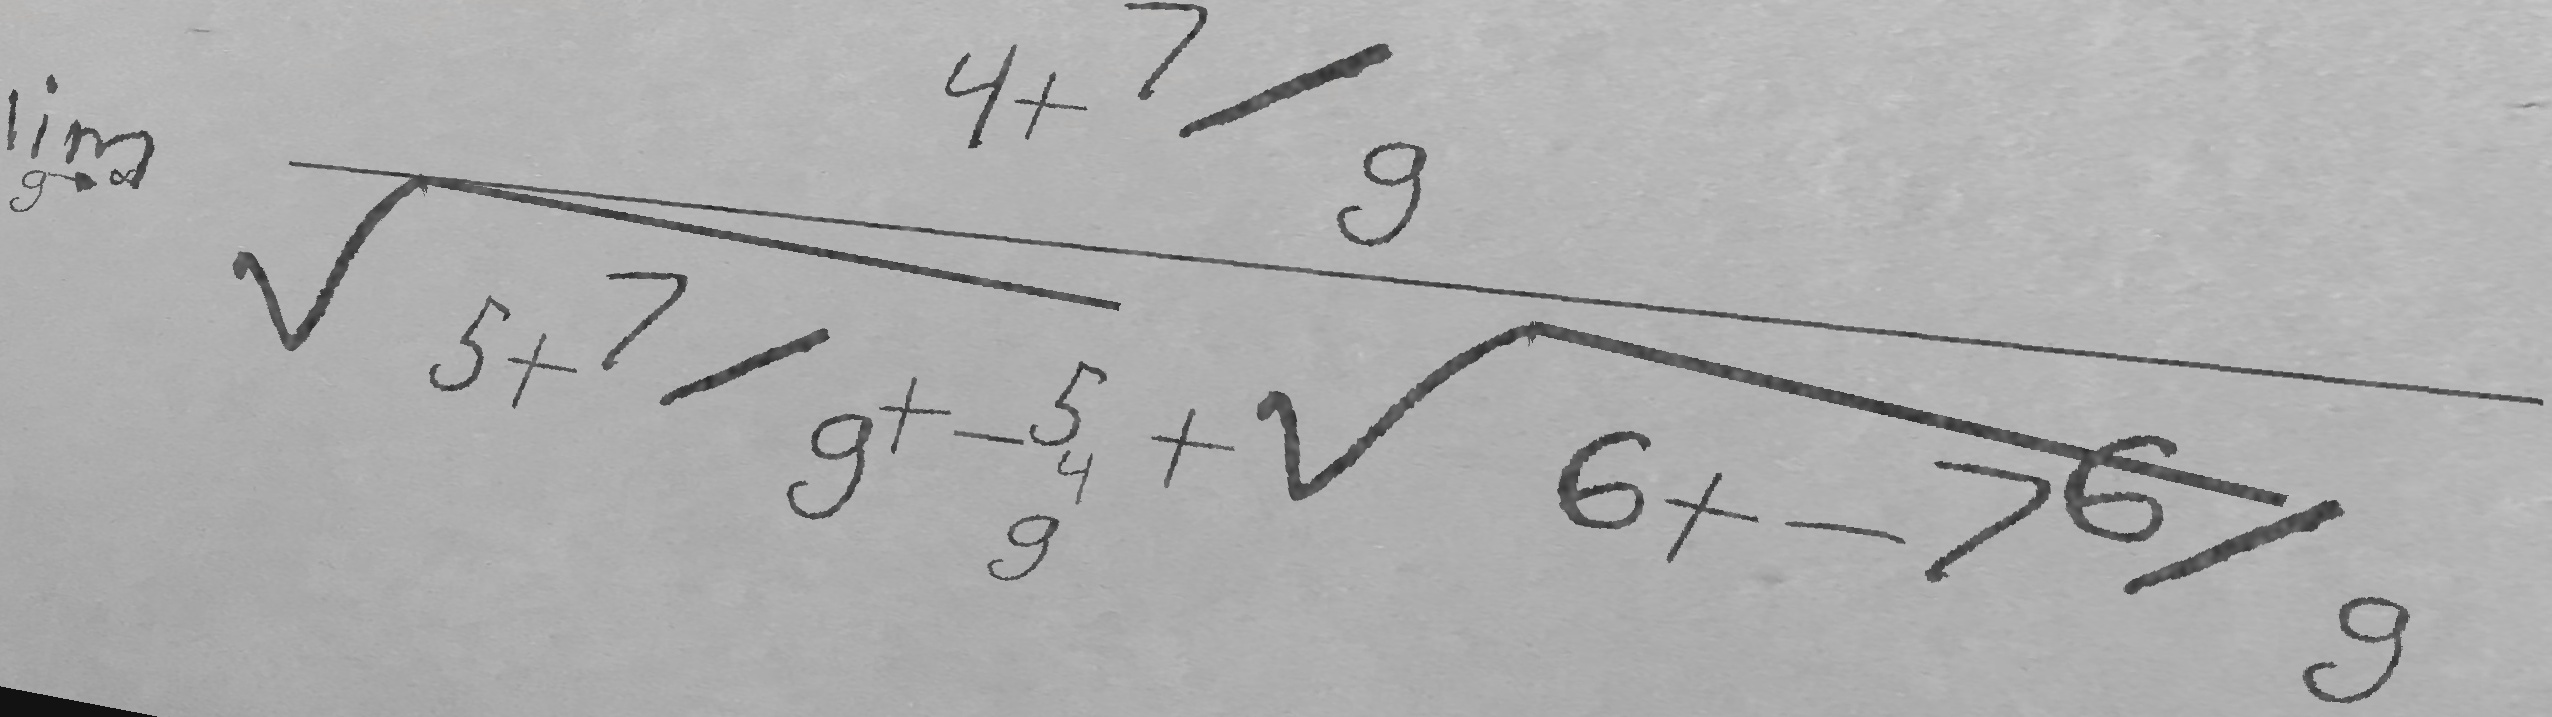 \lim_{g \to \infty} \frac{4 + 7/g}{\sqrt{5 + 7/g + \frac{-5}{g^4}} + \sqrt{6 + -76/g}}